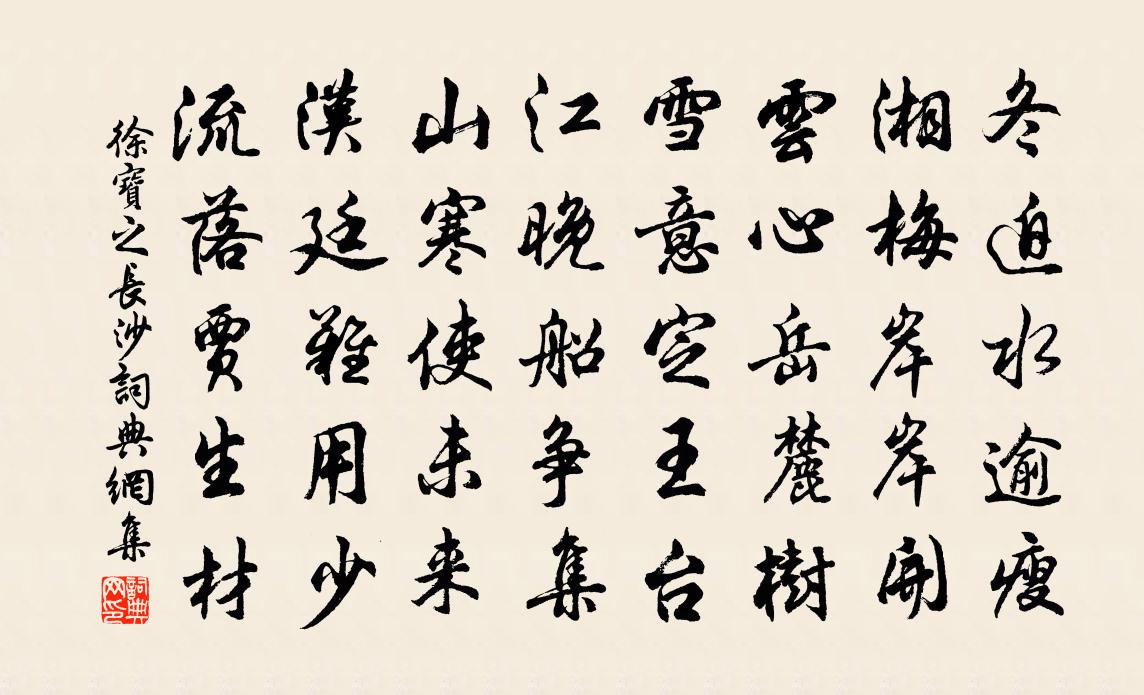 冬迫水逾瘦
湘梅岸岸開
雲心岳麓樹
雪意定王台
江晚船爭集
山寒使未来
漢廷難用少
流落賈生材
徐寶之長沙詞典網集
詞典网印